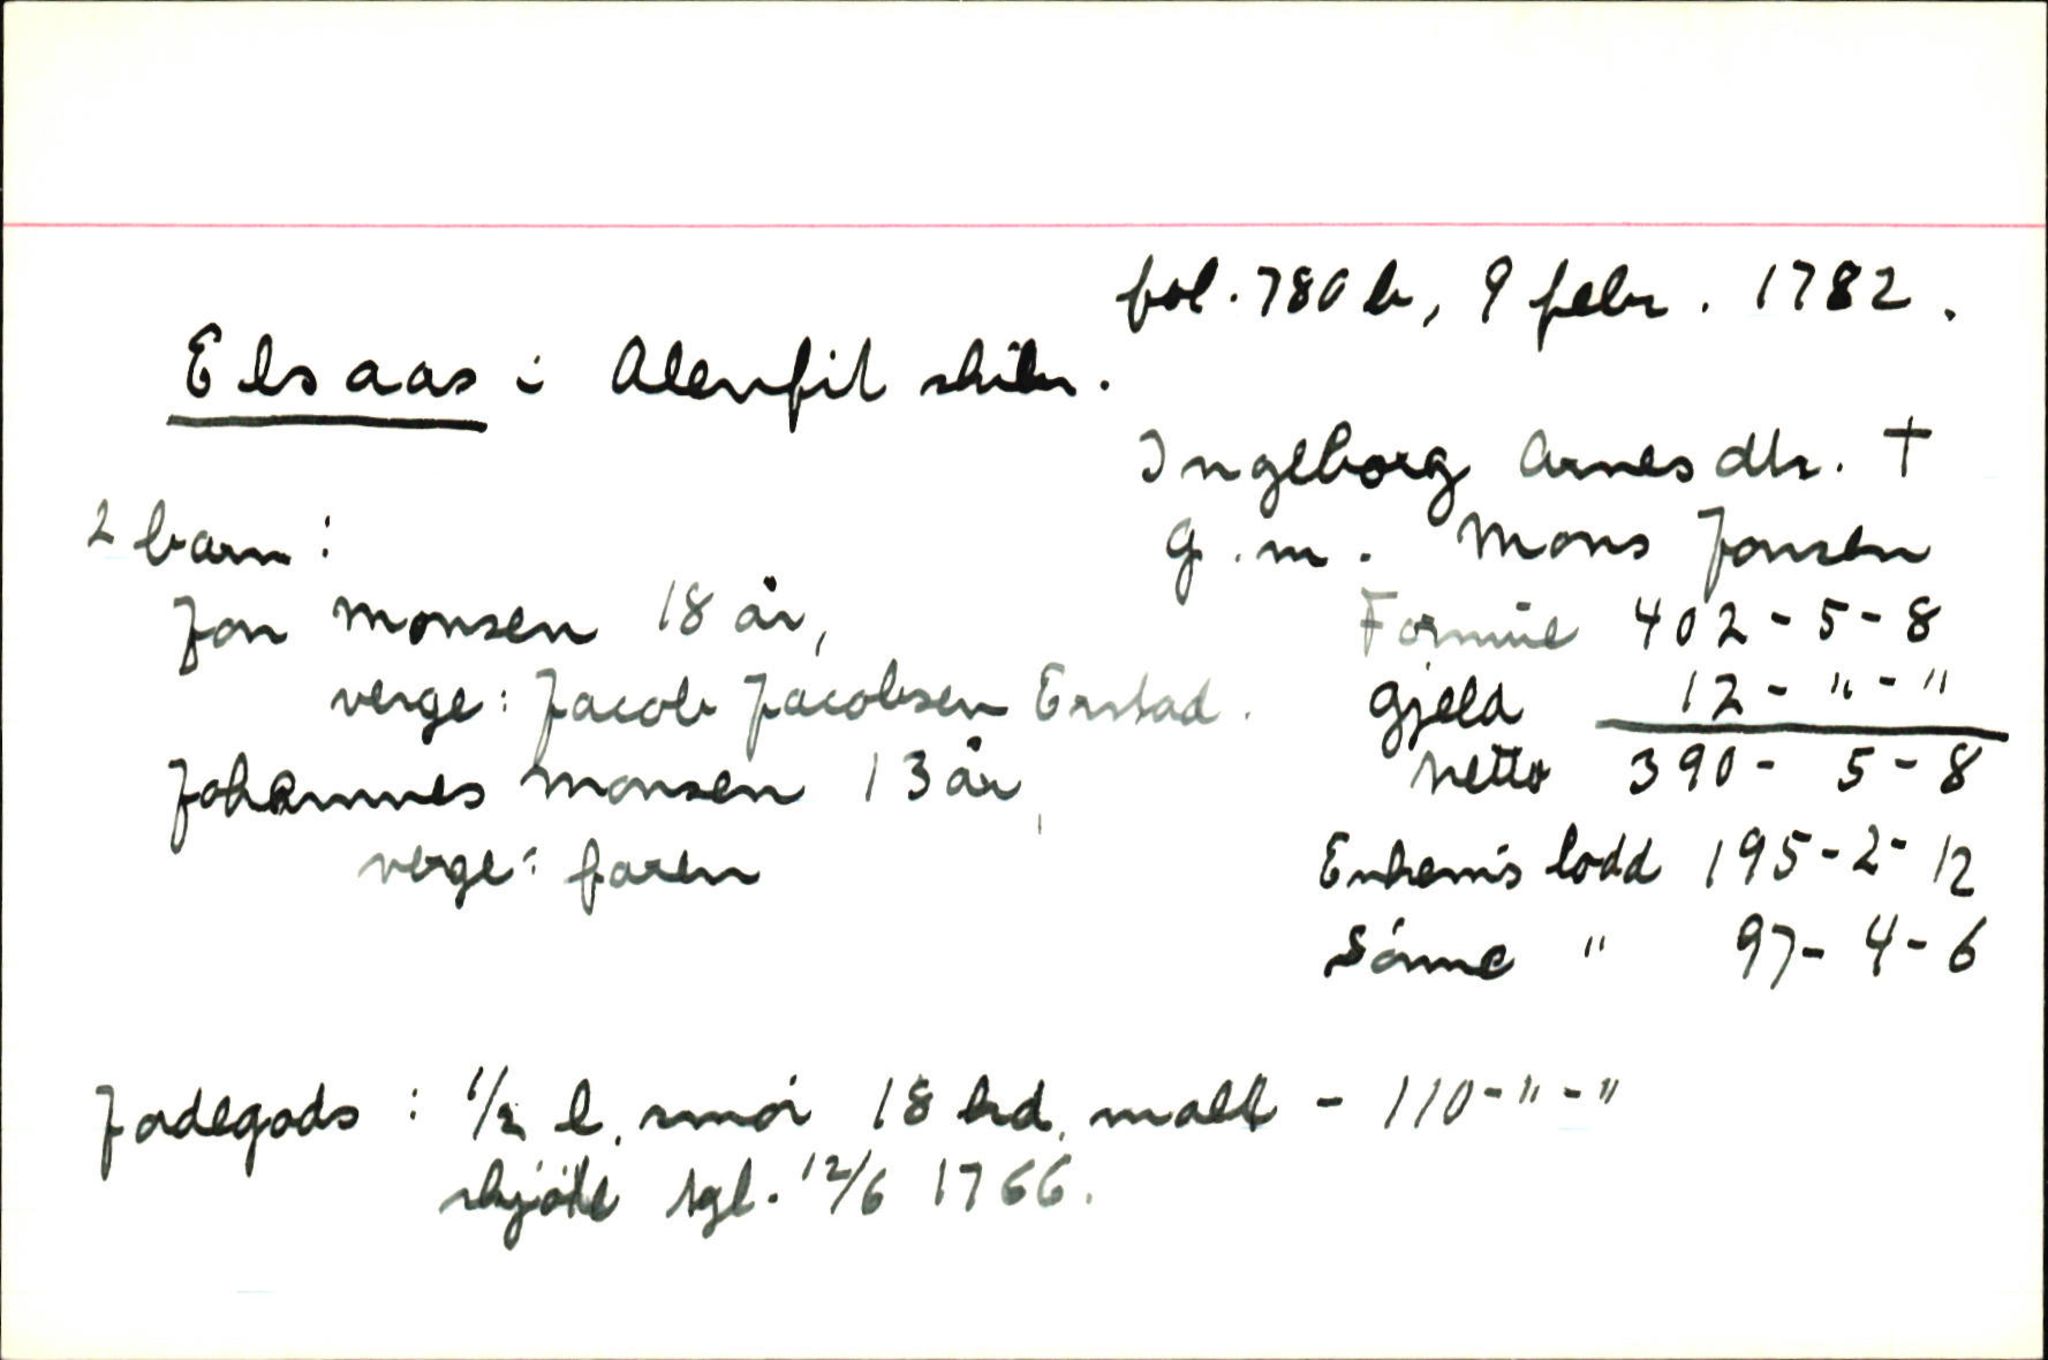 fol. 780 b, 9 febr. 1782.
Elsaas i Alenfit skibr.
Ingeborg Arnesdtr. †
2 barn:
g.m. Mons Jonsen
Jon Monsen 18 år,
Formue 402-5-8
verge: Jacob Jacobsen Erstad.
Gjeld 12-"-"
Johannes Monsen 13 år,
Netto 390-5-8
verge: faren
Enkem's lodd 195-2-12
Sönne " 97-4-6
Jordegods: 1/2 l. smör 18 kd. malt - 110-"-"
skjöte tgl. 12/6 1766.